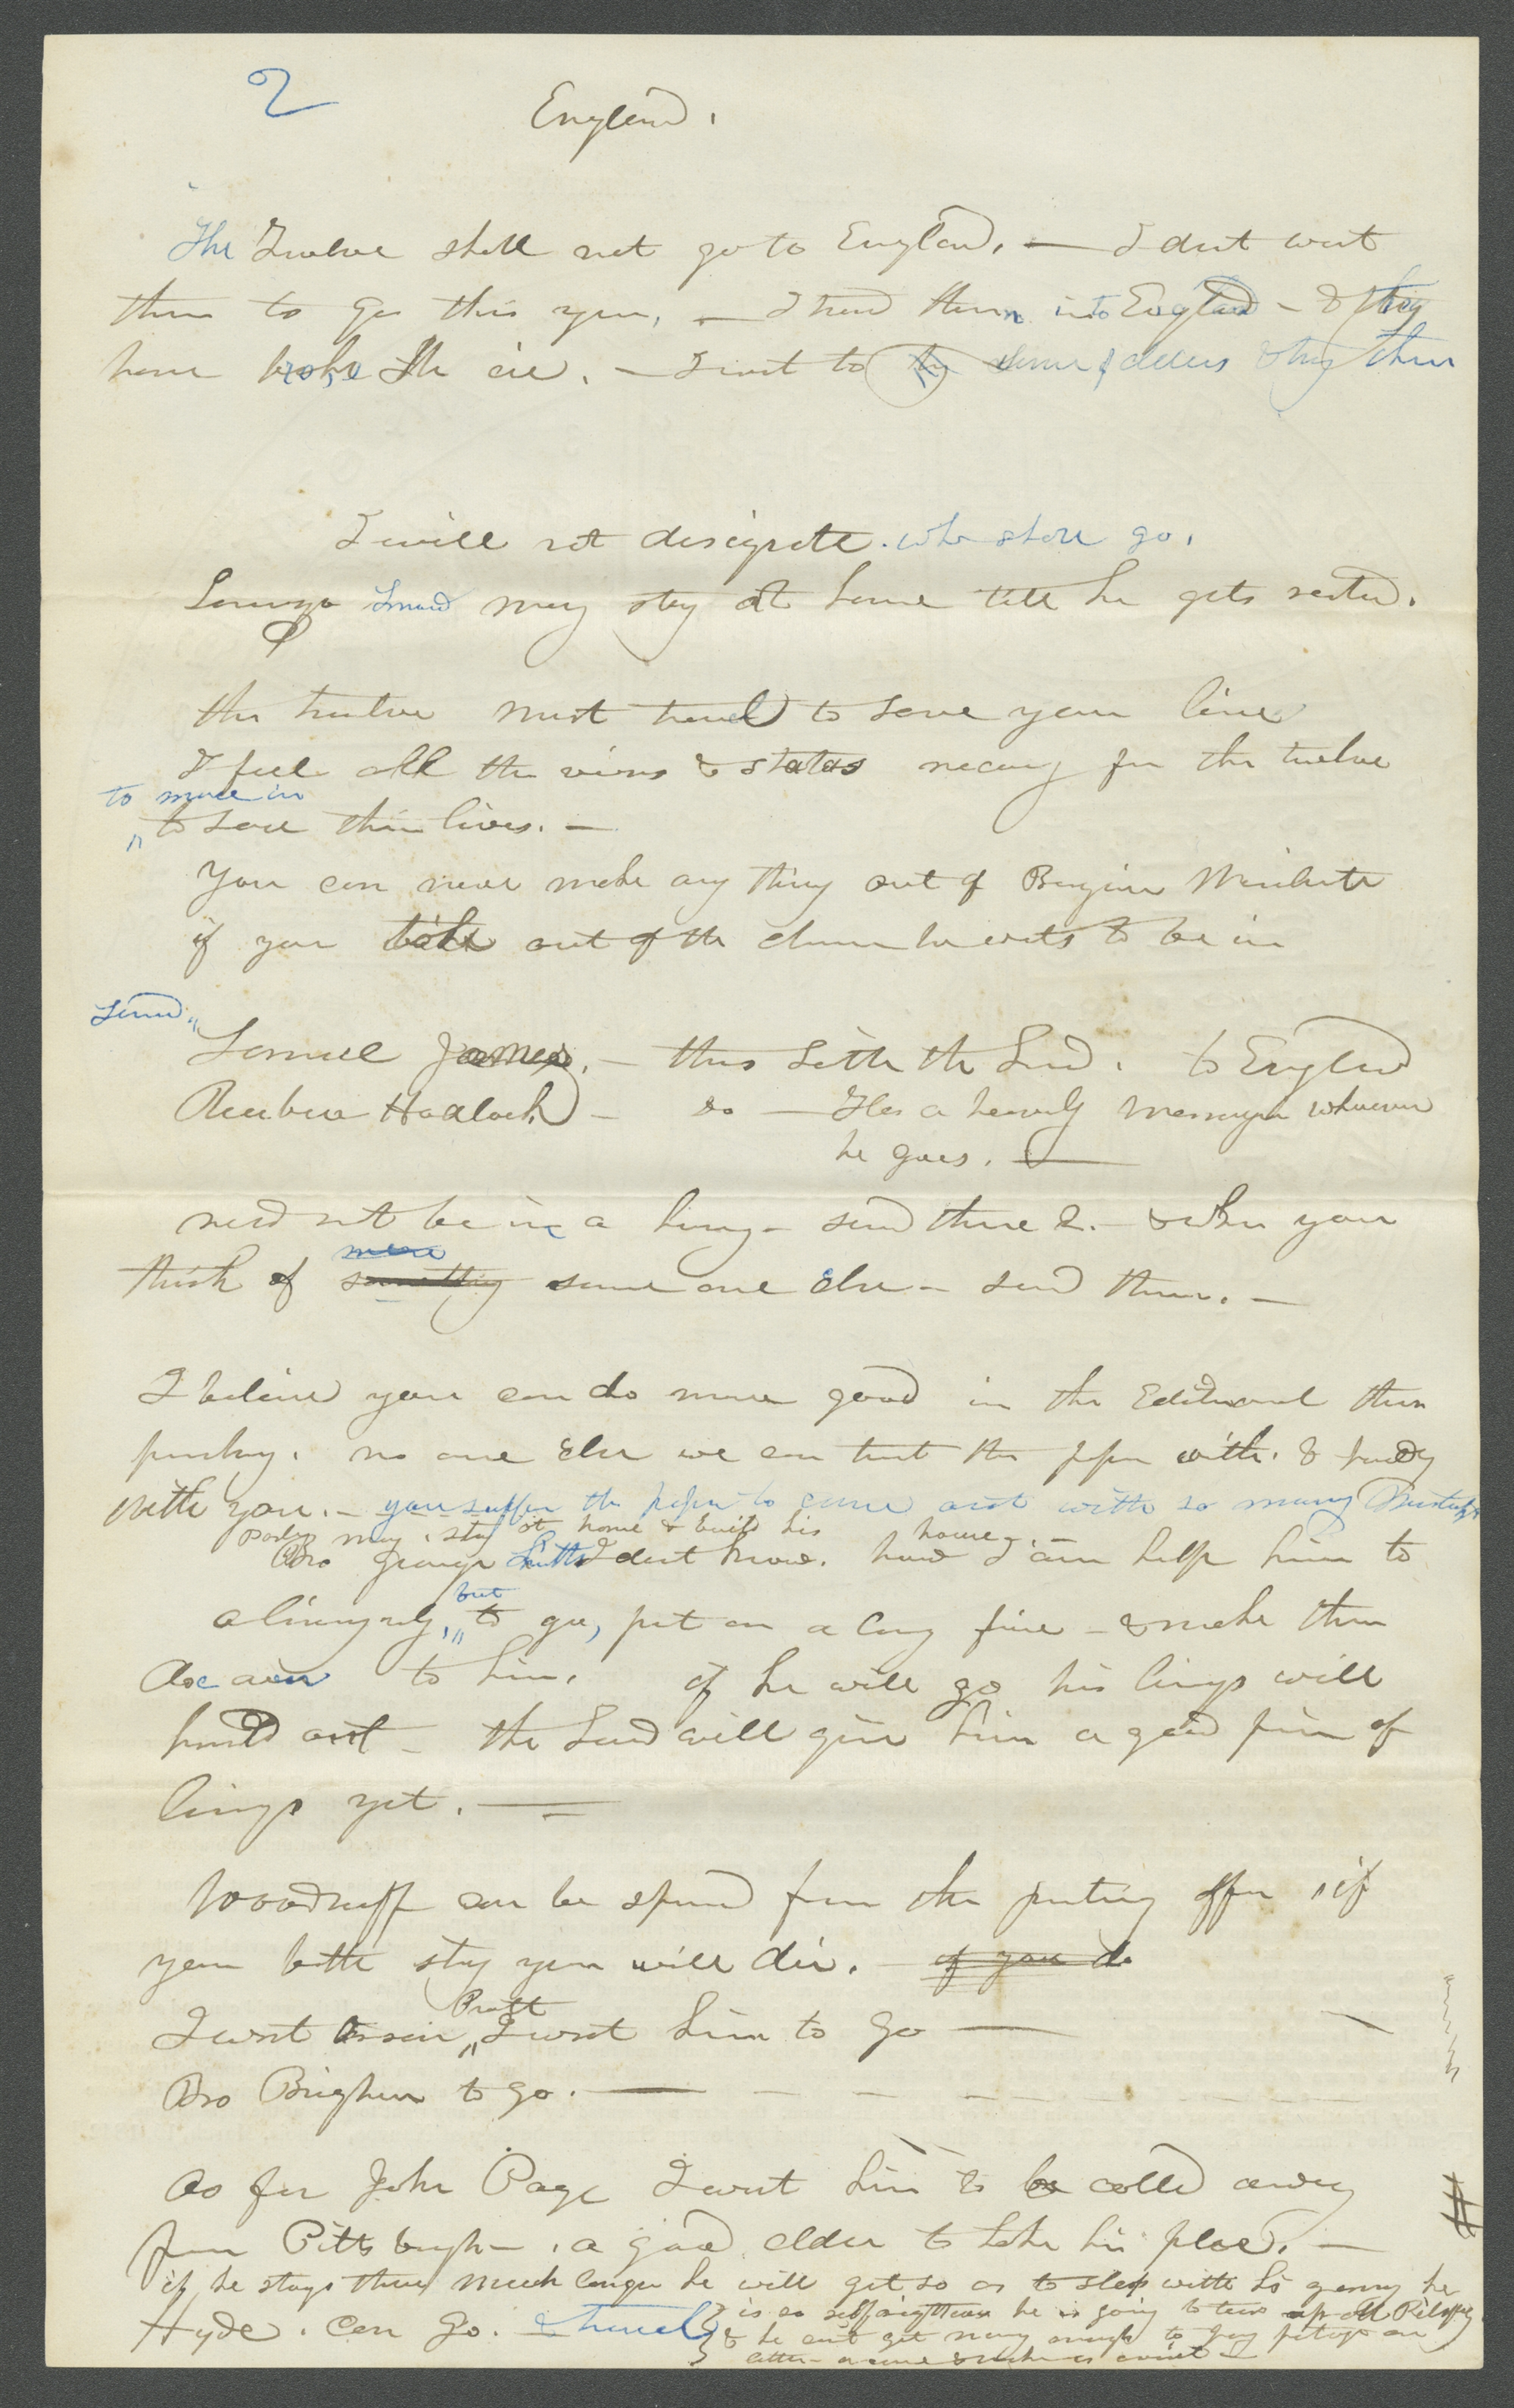 2
England.
The Twelve shall not go to England. — I dont want
them to go this year, — I send them into England — & they
have broke the ice. — I want to some of elders & try them
I will not designate. who shall go.
Lorenzo Snow may stay at home till he gets rested.
the twelve must travel to save your lives
I feel all the veins & status necessary for the twelve
to move in
to save their lives. —
You can never make any thing out of Benjamin Winchester
if you take out of the he wants to be in
Send
Samuel James. — thus saith the Lord. to England
Reuben Hadlock — do — He's a heavenly messenger wherever
he goes. —
need not be in a hurry — send these 2. & when you
more
think of something some one else — send them. —
I believe you can do more good in the Editorial than
preaching. no one else we can trust the paper with. & hardly
with you. — you suffer the paper to come out with so many mistakes
Parley may stay at home & build his house. —
Bro George Smith I dont know. how I can help him to
a living only, but to go, put on a long face — & make them
Doe over to him. if he will go his lungs will
hold out — the Lord will give him a good pair of
lungs yet. —
Woodruff can be spared from the printing office if
you both stay you will die. — if you do
I want Orson Pratt I want him to go —
Bro Brigham to go. —
As for John Page I want him to be called away
from Pittsburgh — a good elder to take his place. —
if he stays there much longer he will get so as to sleep with his granny he
Hyde. can go. & travel is so self righteous he is going to tear up all
& he cant get money enough to pay postage on
letter